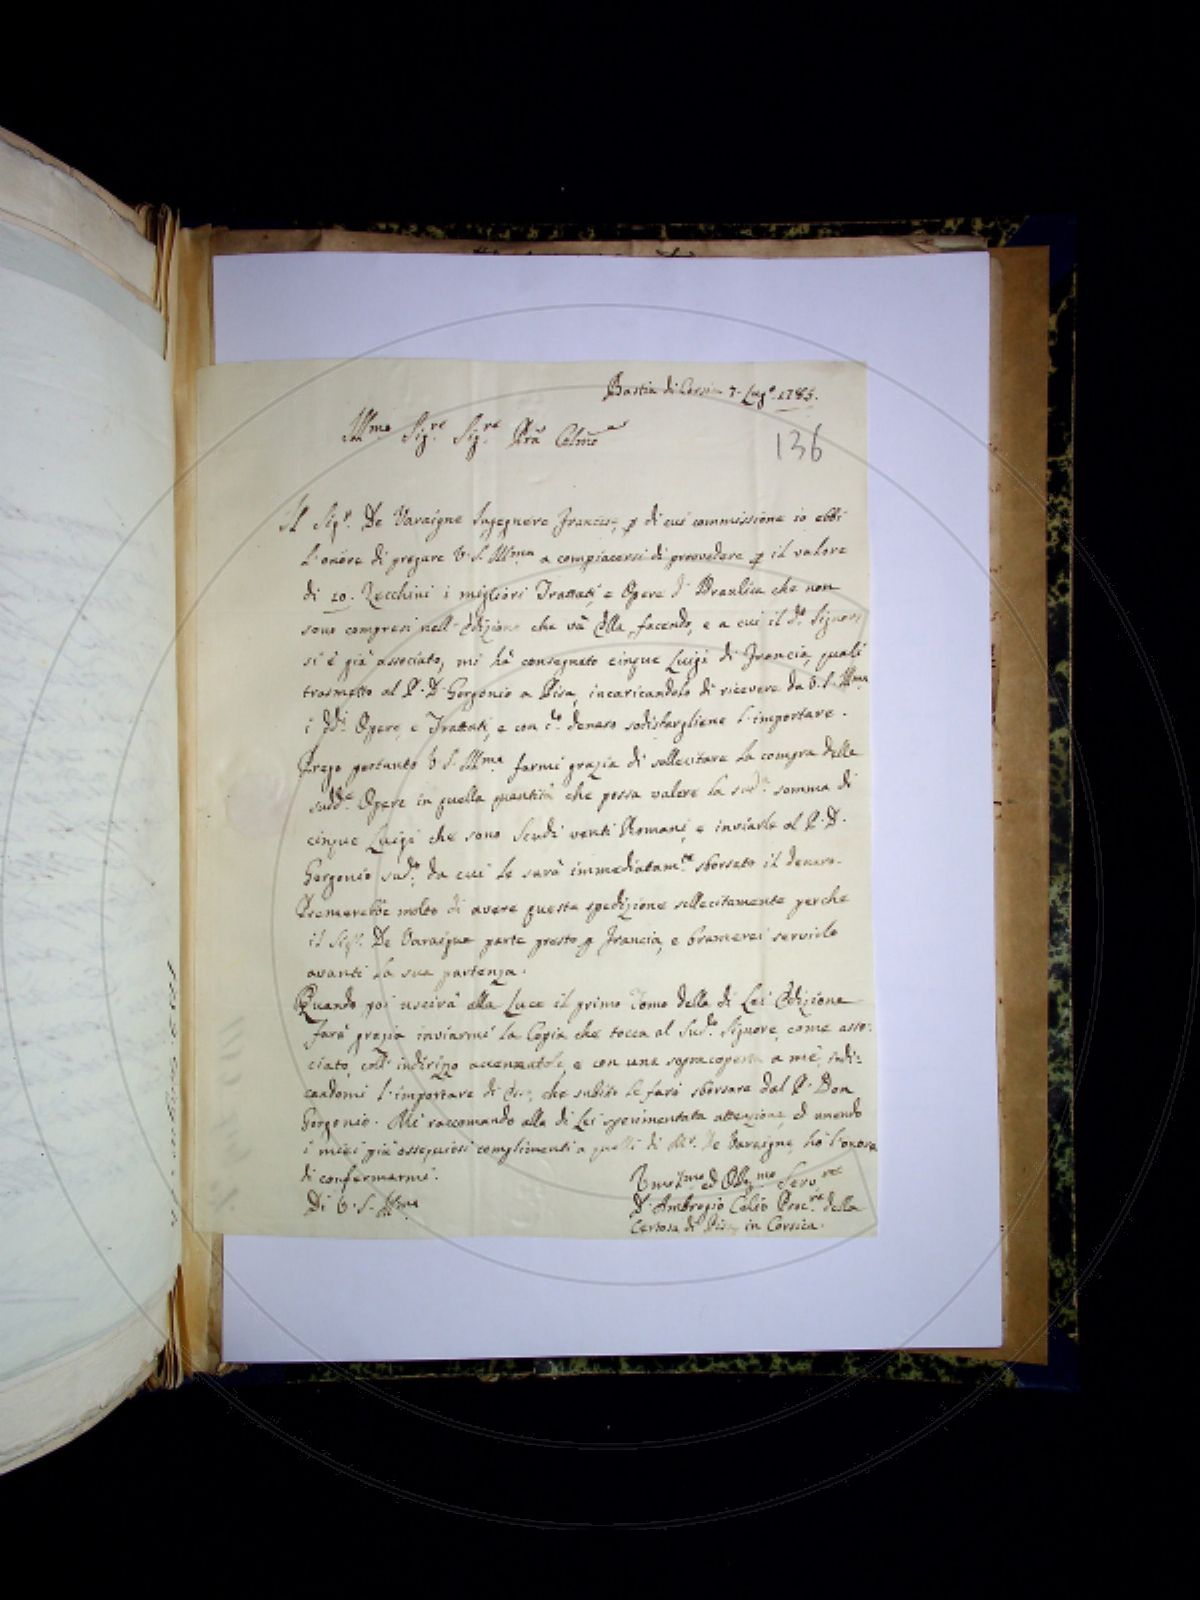 Bastia di Corsica 7. Lug.º 1785.
136
Ill.mo Sig.re Sig.re Pṝn Colmo
Il Sig.r De Varaigne Ingegnere Francese, ꝑ di cui commissione io ebbi
l'onore di pregare V. S. Ill.ma a compiacersi di provvedere ꝑ il valore
di 10. Zecchini i migliori Trattati, e Opere d'Idraulica che non
sono compresi nell'Edizione che và Ella facendo, e a cui il d.º Signore
si è già associato, mi hà consegnato cinque Luigi di Francia, quali
trasmetto al P. D. Gorgonio a Pisa, incaricandolo di ricevere da V. S. Ill.ma
i dd.i Opere, e Trattati, e con d.º denaro sodisfargliene l'importare.
Prego pertanto V. S. Ill.ma farmi grazia di sollecitare la compra delle
sudd.e Opere in quella quantità che possa valere la sud.a somma di
cinque Luigi che sono Scudi venti Romani, e inviarle al P. D.
Gorgonio sud.º da cui le sarà immediatam.te sborsato il denaro.
Premerebbe molto di avere questa spedizione sollecitamente perche
il Sig.r De Varaigne parte presto ꝑ Francia, e bramerei servirlo
avanti la sua partenza.
Quando poi uscirà alla Luce il primo Tomo della di Lei Edizione
farà grazia inviarmi la Copia che tocca al Sud.º Signore, come asso-
ciato, coll'indirizzo accennatole, e con una sopracoperta a mè, indi=
candomi l'importare di che subito le farò sborsare dal P. Don
Gorgonio. Mi raccomando alla di Lei sperimentata attenzione, ed unendo
i miei più ossequiosi complimenti a quelli di Mr. De Varaigne, hò l'onore
di confermarmi.
Di V. S. Ill.ma
Umil.mo ed Obb.mo Serv.re
D. Ambrogio Proc.re della
Certosa di Pisa in Corsica.